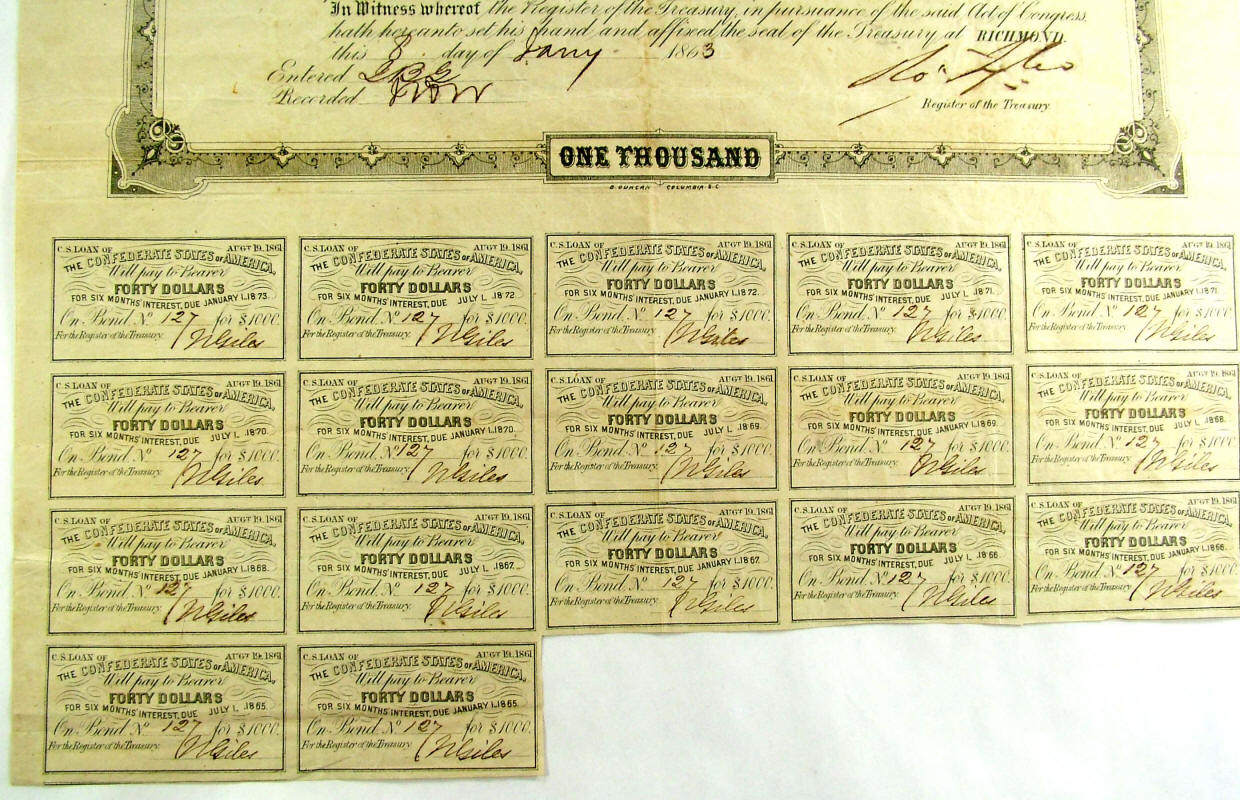 In Witness whereof, the Register of the Treasury, in pursuance of the said Act of Congress,
hath hereunto set his hand and affixed the seal of the Treasury, at RICHMOND.
this 8. day of Jany 1863
Entered
Recorded
Register of the Treasury.
ONE THOUSAND
B. DUNCAN COLUMBIA S.C.
C.S. LOAN OF AUGT 19. 1861
THE CONFEDERATE STATES OF AMERICA,
Will pay to Bearer
FORTY DOLLARS
FOR SIX MONTHS' INTEREST, DUE JANUARY 1. 1873.
On Bond No 127 for $1000.
For the Register of the Treasury. N Giles
C.S. LOAN OF AUGT 19. 1861
THE CONFEDERATE STATES OF AMERICA,
Will pay to Bearer
FORTY DOLLARS
FOR SIX MONTHS' INTEREST, DUE JULY 1. 1872.
On Bond No 127 for $1000.
For the Register of the Treasury. N Giles
C.S. LOAN OF AUGT 19. 1861
THE CONFEDERATE STATES OF AMERICA,
Will pay to Bearer
FORTY DOLLARS
FOR SIX MONTHS' INTEREST, DUE JANUARY 1. 1872.
On Bond No 127 for $1000.
For the Register of the Treasury. N Giles
C.S. LOAN OF AUGT 19. 1861
THE CONFEDERATE STATES OF AMERICA,
Will pay to Bearer
FORTY DOLLARS
FOR SIX MONTHS' INTEREST, DUE JULY 1. 1871.
On Bond No 127 for $1000.
For the Register of the Treasury. N Giles
C.S. LOAN OF AUGT 19. 1861
THE CONFEDERATE STATES OF AMERICA,
Will pay to Bearer
FORTY DOLLARS
FOR SIX MONTHS' INTEREST, DUE JANUARY 1. 1871.
On Bond No 127 for $1000.
For the Register of the Treasury. N Giles
C.S. LOAN OF AUGT 19. 1861
THE CONFEDERATE STATES OF AMERICA,
Will pay to Bearer
FORTY DOLLARS
FOR SIX MONTHS' INTEREST, DUE JULY 1. 1870.
On Bond No 127 for $1000.
For the Register of the Treasury. N Giles
C.S. LOAN OF AUGT 19. 1861
THE CONFEDERATE STATES OF AMERICA,
Will pay to Bearer
FORTY DOLLARS
FOR SIX MONTHS' INTEREST, DUE JANUARY 1. 1870.
On Bond No 127 for $1000.
For the Register of the Treasury. N Giles
C.S. LOAN OF AUGT 19. 1861
THE CONFEDERATE STATES OF AMERICA,
Will pay to Bearer
FORTY DOLLARS
FOR SIX MONTHS' INTEREST, DUE JULY 1. 1869.
On Bond No 127 for $1000.
For the Register of the Treasury. N Giles
C.S. LOAN OF AUGT 19. 1861
THE CONFEDERATE STATES OF AMERICA,
Will pay to Bearer
FORTY DOLLARS
FOR SIX MONTHS' INTEREST, DUE JANUARY 1. 1869.
On Bond No 127 for $1000.
For the Register of the Treasury. N Giles
C.S. LOAN OF AUGT 19. 1861
THE CONFEDERATE STATES OF AMERICA,
Will pay to Bearer
FORTY DOLLARS
FOR SIX MONTHS' INTEREST, DUE JULY 1. 1868.
On Bond No 127 for $1000.
For the Register of the Treasury. N Giles
C.S. LOAN OF AUGT 19. 1861
THE CONFEDERATE STATES OF AMERICA,
Will pay to Bearer
FORTY DOLLARS
FOR SIX MONTHS' INTEREST, DUE JANUARY 1. 1868.
On Bond No 127 for $1000.
For the Register of the Treasury. N Giles
C.S. LOAN OF AUGT 19. 1861
THE CONFEDERATE STATES OF AMERICA,
Will pay to Bearer
FORTY DOLLARS
FOR SIX MONTHS' INTEREST, DUE JULY 1. 1867.
On Bond No 127 for $1000.
For the Register of the Treasury. N Giles
C.S. LOAN OF AUGT 19. 1861
THE CONFEDERATE STATES OF AMERICA,
Will pay to Bearer
FORTY DOLLARS
FOR SIX MONTHS' INTEREST, DUE JANUARY 1. 1867.
On Bond No 127 for $1000.
For the Register of the Treasury. N Giles
C.S. LOAN OF AUGT 19. 1861
THE CONFEDERATE STATES OF AMERICA,
Will pay to Bearer
FORTY DOLLARS
FOR SIX MONTHS' INTEREST, DUE JULY 1. 1866.
On Bond No 127 for $1000.
For the Register of the Treasury. N Giles
C.S. LOAN OF AUGT 19. 1861
THE CONFEDERATE STATES OF AMERICA,
Will pay to Bearer
FORTY DOLLARS
FOR SIX MONTHS' INTEREST, DUE JANUARY 1. 1866.
On Bond No 127 for $1000.
For the Register of the Treasury. N Giles
C.S. LOAN OF AUGT 19. 1861
THE CONFEDERATE STATES OF AMERICA,
Will pay to Bearer
FORTY DOLLARS
FOR SIX MONTHS' INTEREST, DUE JULY 1. 1865.
On Bond No 127 for $1000.
For the Register of the Treasury. N Giles
C.S. LOAN OF AUGT 19. 1861
THE CONFEDERATE STATES OF AMERICA,
Will pay to Bearer
FORTY DOLLARS
FOR SIX MONTHS' INTEREST, DUE JANUARY 1. 1865.
On Bond No 127 for $1000.
For the Register of the Treasury. N Giles